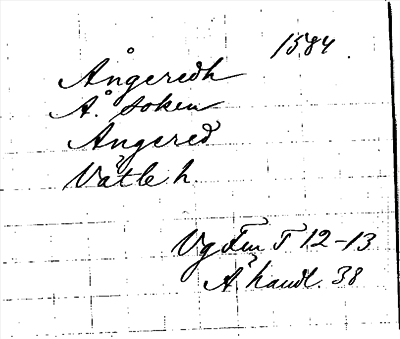 1584.
Ångeredh
Å. soken
Angered
Vätle h.
Vg Fru T 12-13
Ä handl. 38